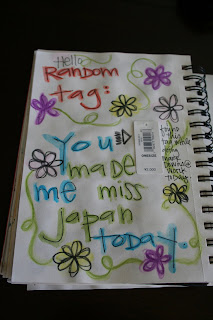 Hello
Random
tag:
You
made
me miss
japan
today.
found
this